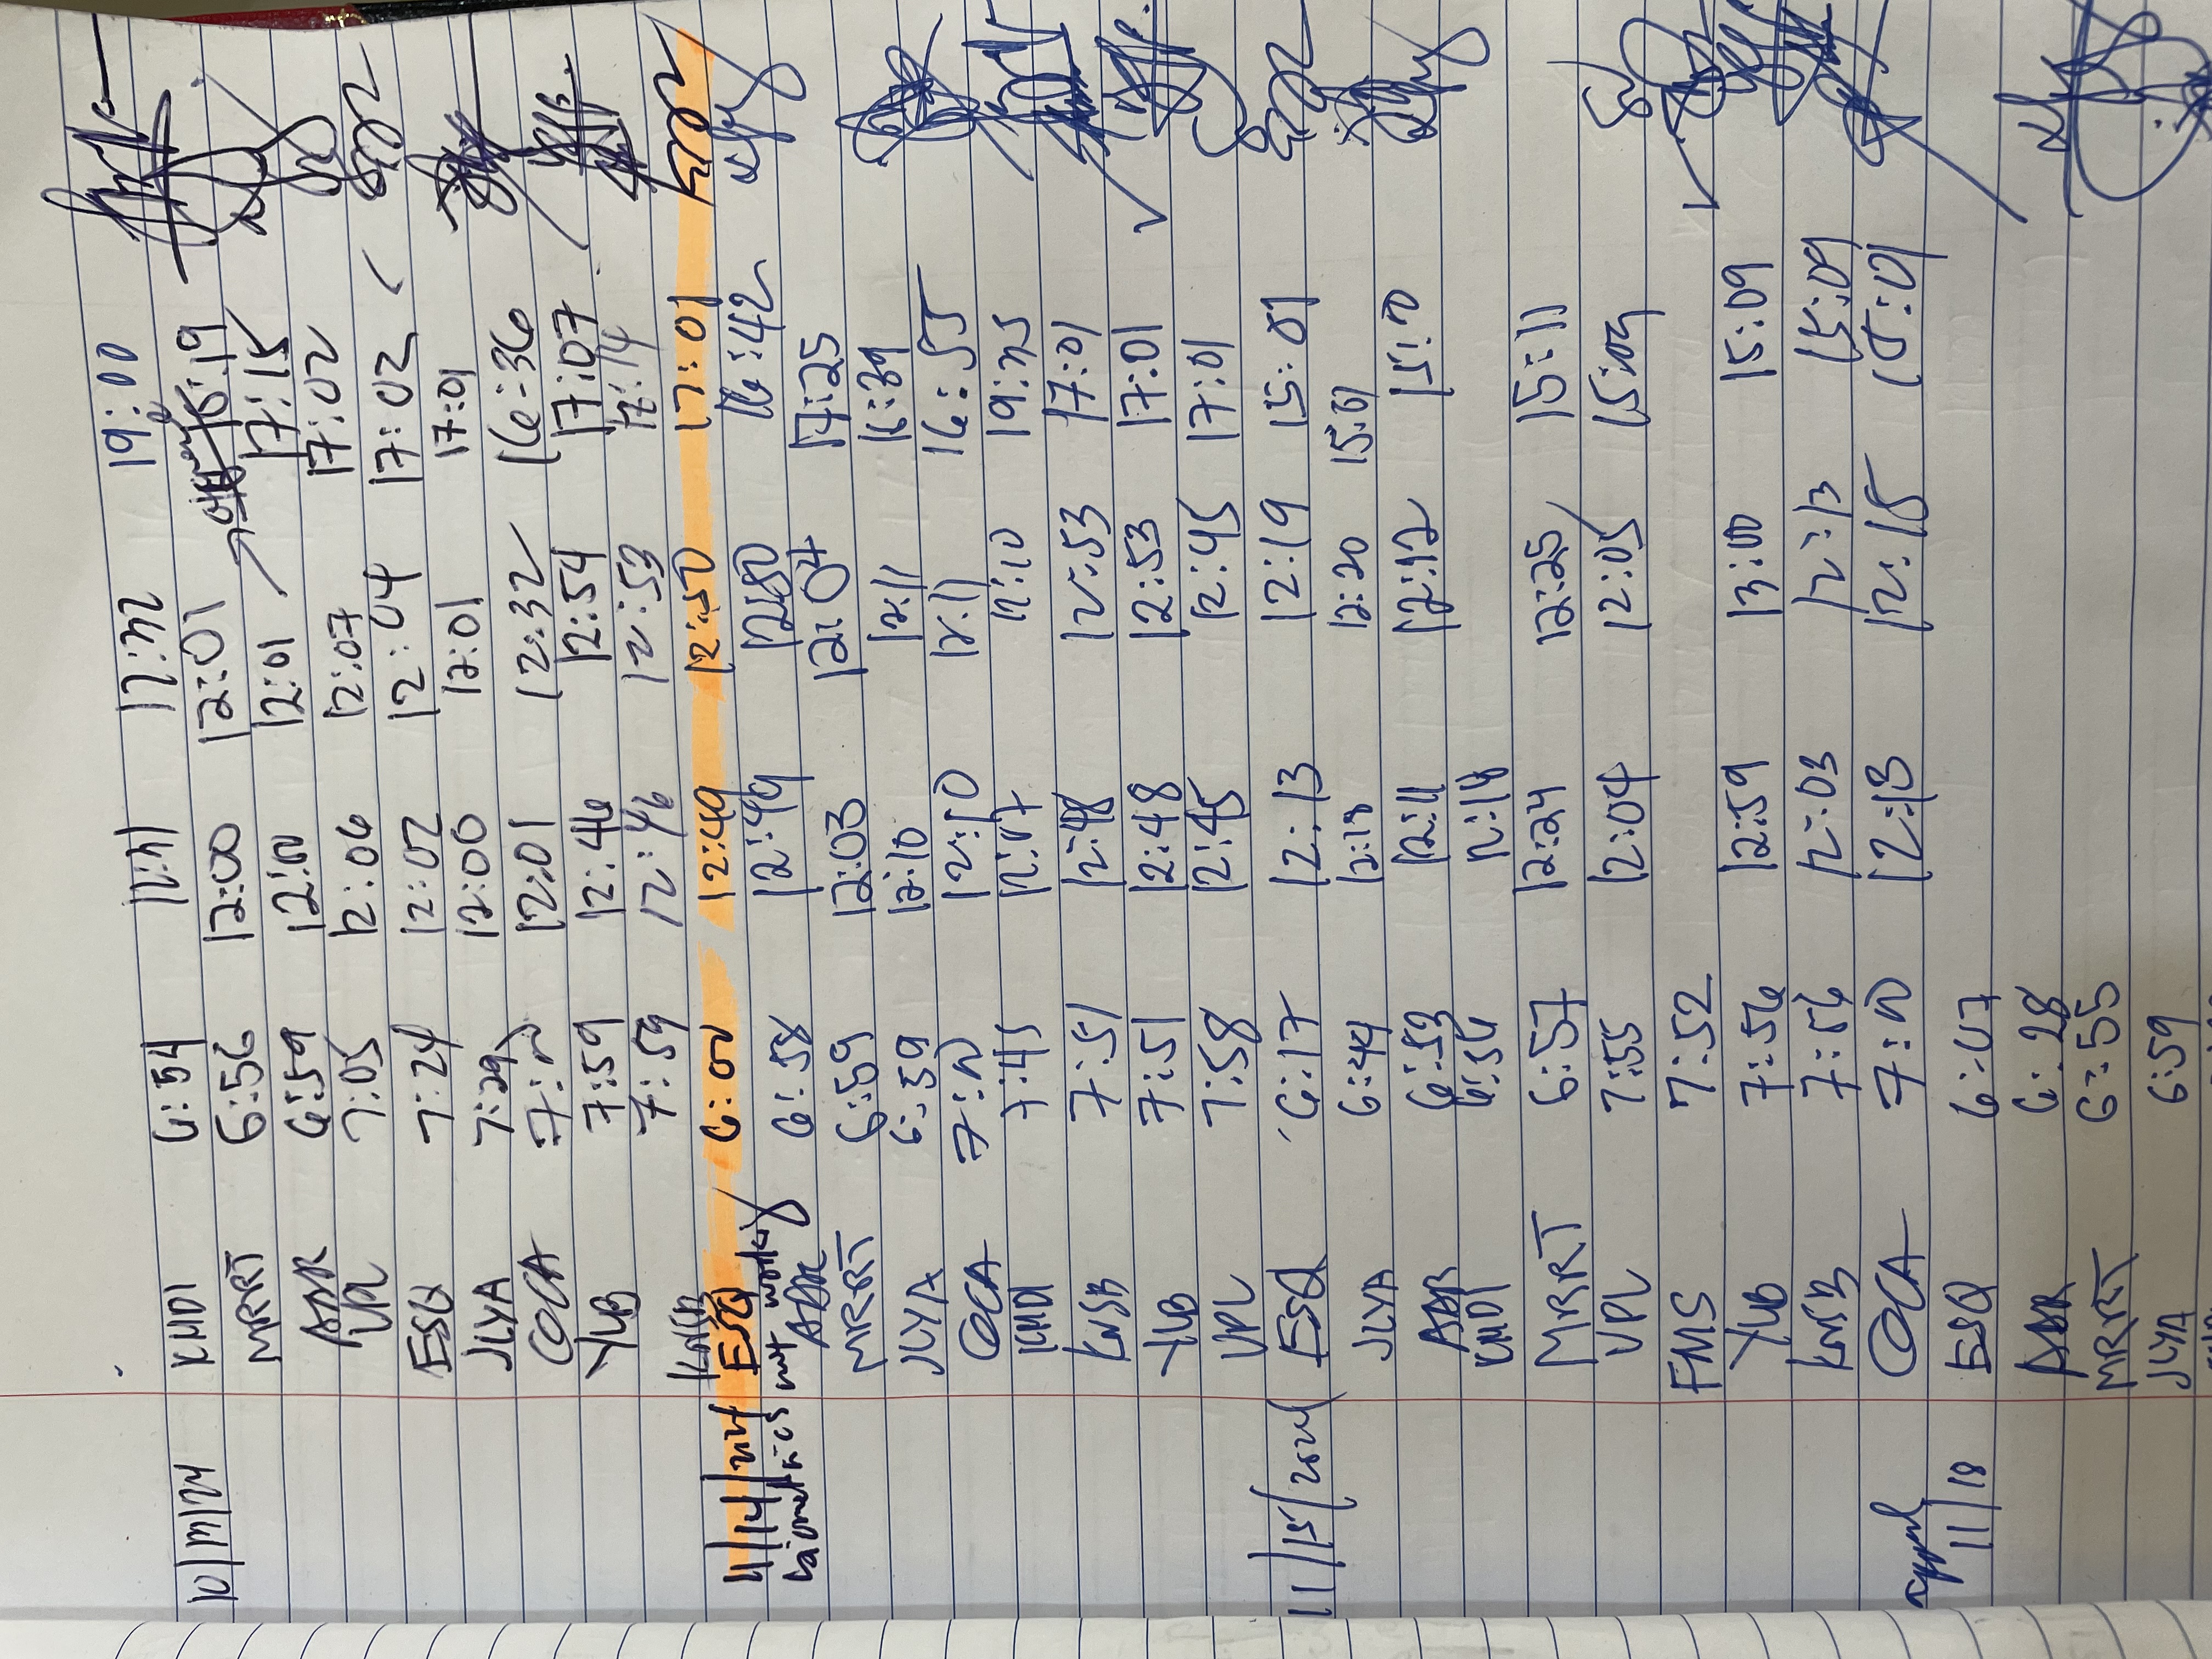 KMDI 6:54 19:00
MRRT 6:56 12:00 12:01 16:19
ADR 6:59 12:00 12:01 17:15
VPL 7:05 12:06 12:07 17:02
ESQ 7:24 12:02 12:04 17:02
JLYA 7:29 12:00 12:01 17:01
COCA 12:01 12:32 16:36
YLB 7:59 12:46 12:54 17:07
KNSB 7:59 12:46 12:53 17:14
11/14/24 ESQ 6:00 12:49 12:50 17:01
biometrics not working
ADR 6:58 12:49 12:50 16:42
MRRT 6:59 12:03 12:04 17:25
JLYA 6:59 12:10 12:11 16:39
COCA 7:00 12:10 12:11 16:55
KMDI 7:45 12:07 12:10
KNSB 7:51 12:48 12:53 17:01
YLB 7:51 12:48 12:53 17:01
VPL 7:58 12:45 12:45 17:01
11/15/2024 ESQ 6:17 12:13 12:19 15:01
JLYA 6:44 12:19 12:20 15:01
ADR 6:53 12:11 12:12 15:10
KMDI 12:14
MRRT 6:57 12:24 12:25 15:11
VPL 7:55 12:04 12:05 15:09
FMS 7:52
YLB 7:56 12:59 13:00 15:09
KNSB 7:56 12:03 12:13 15:09
COCA 7:00 12:13 12:15 15:01
11/18 ESQ 6:07
ADR 6:28
MRRT 6:55
JLYA 6:59